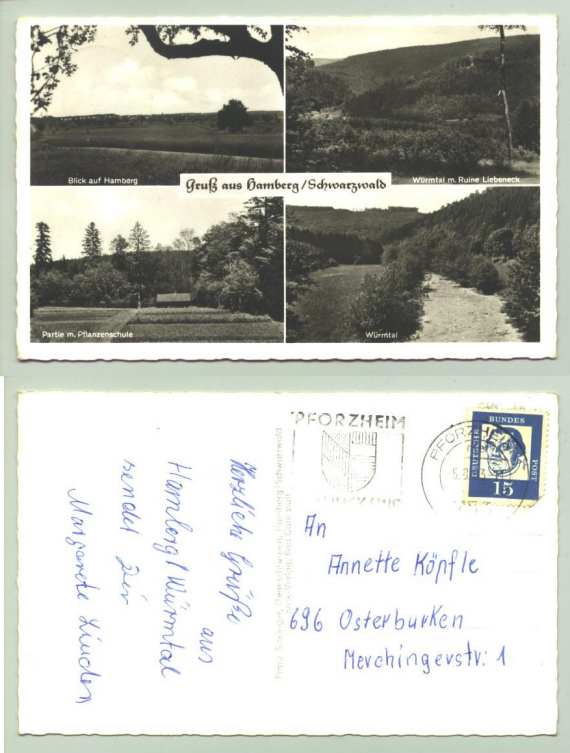 Blick auf Hamberg
Würmtal m. Ruine Liebeneck
Gruß aus Hamberg/Schwarzwald
Partie m. Pflanzenschule
Würmtal
PFORZHEIM
PFORZHEIM
DEUTSCHE
BUNDES
POST
15
Herzliche Grüße
aus
Hamberg/Würmtal
sendet Dir
Margarete Linden
An
Annette Köpfle
696 Osterburken
Merchingerstr. 1